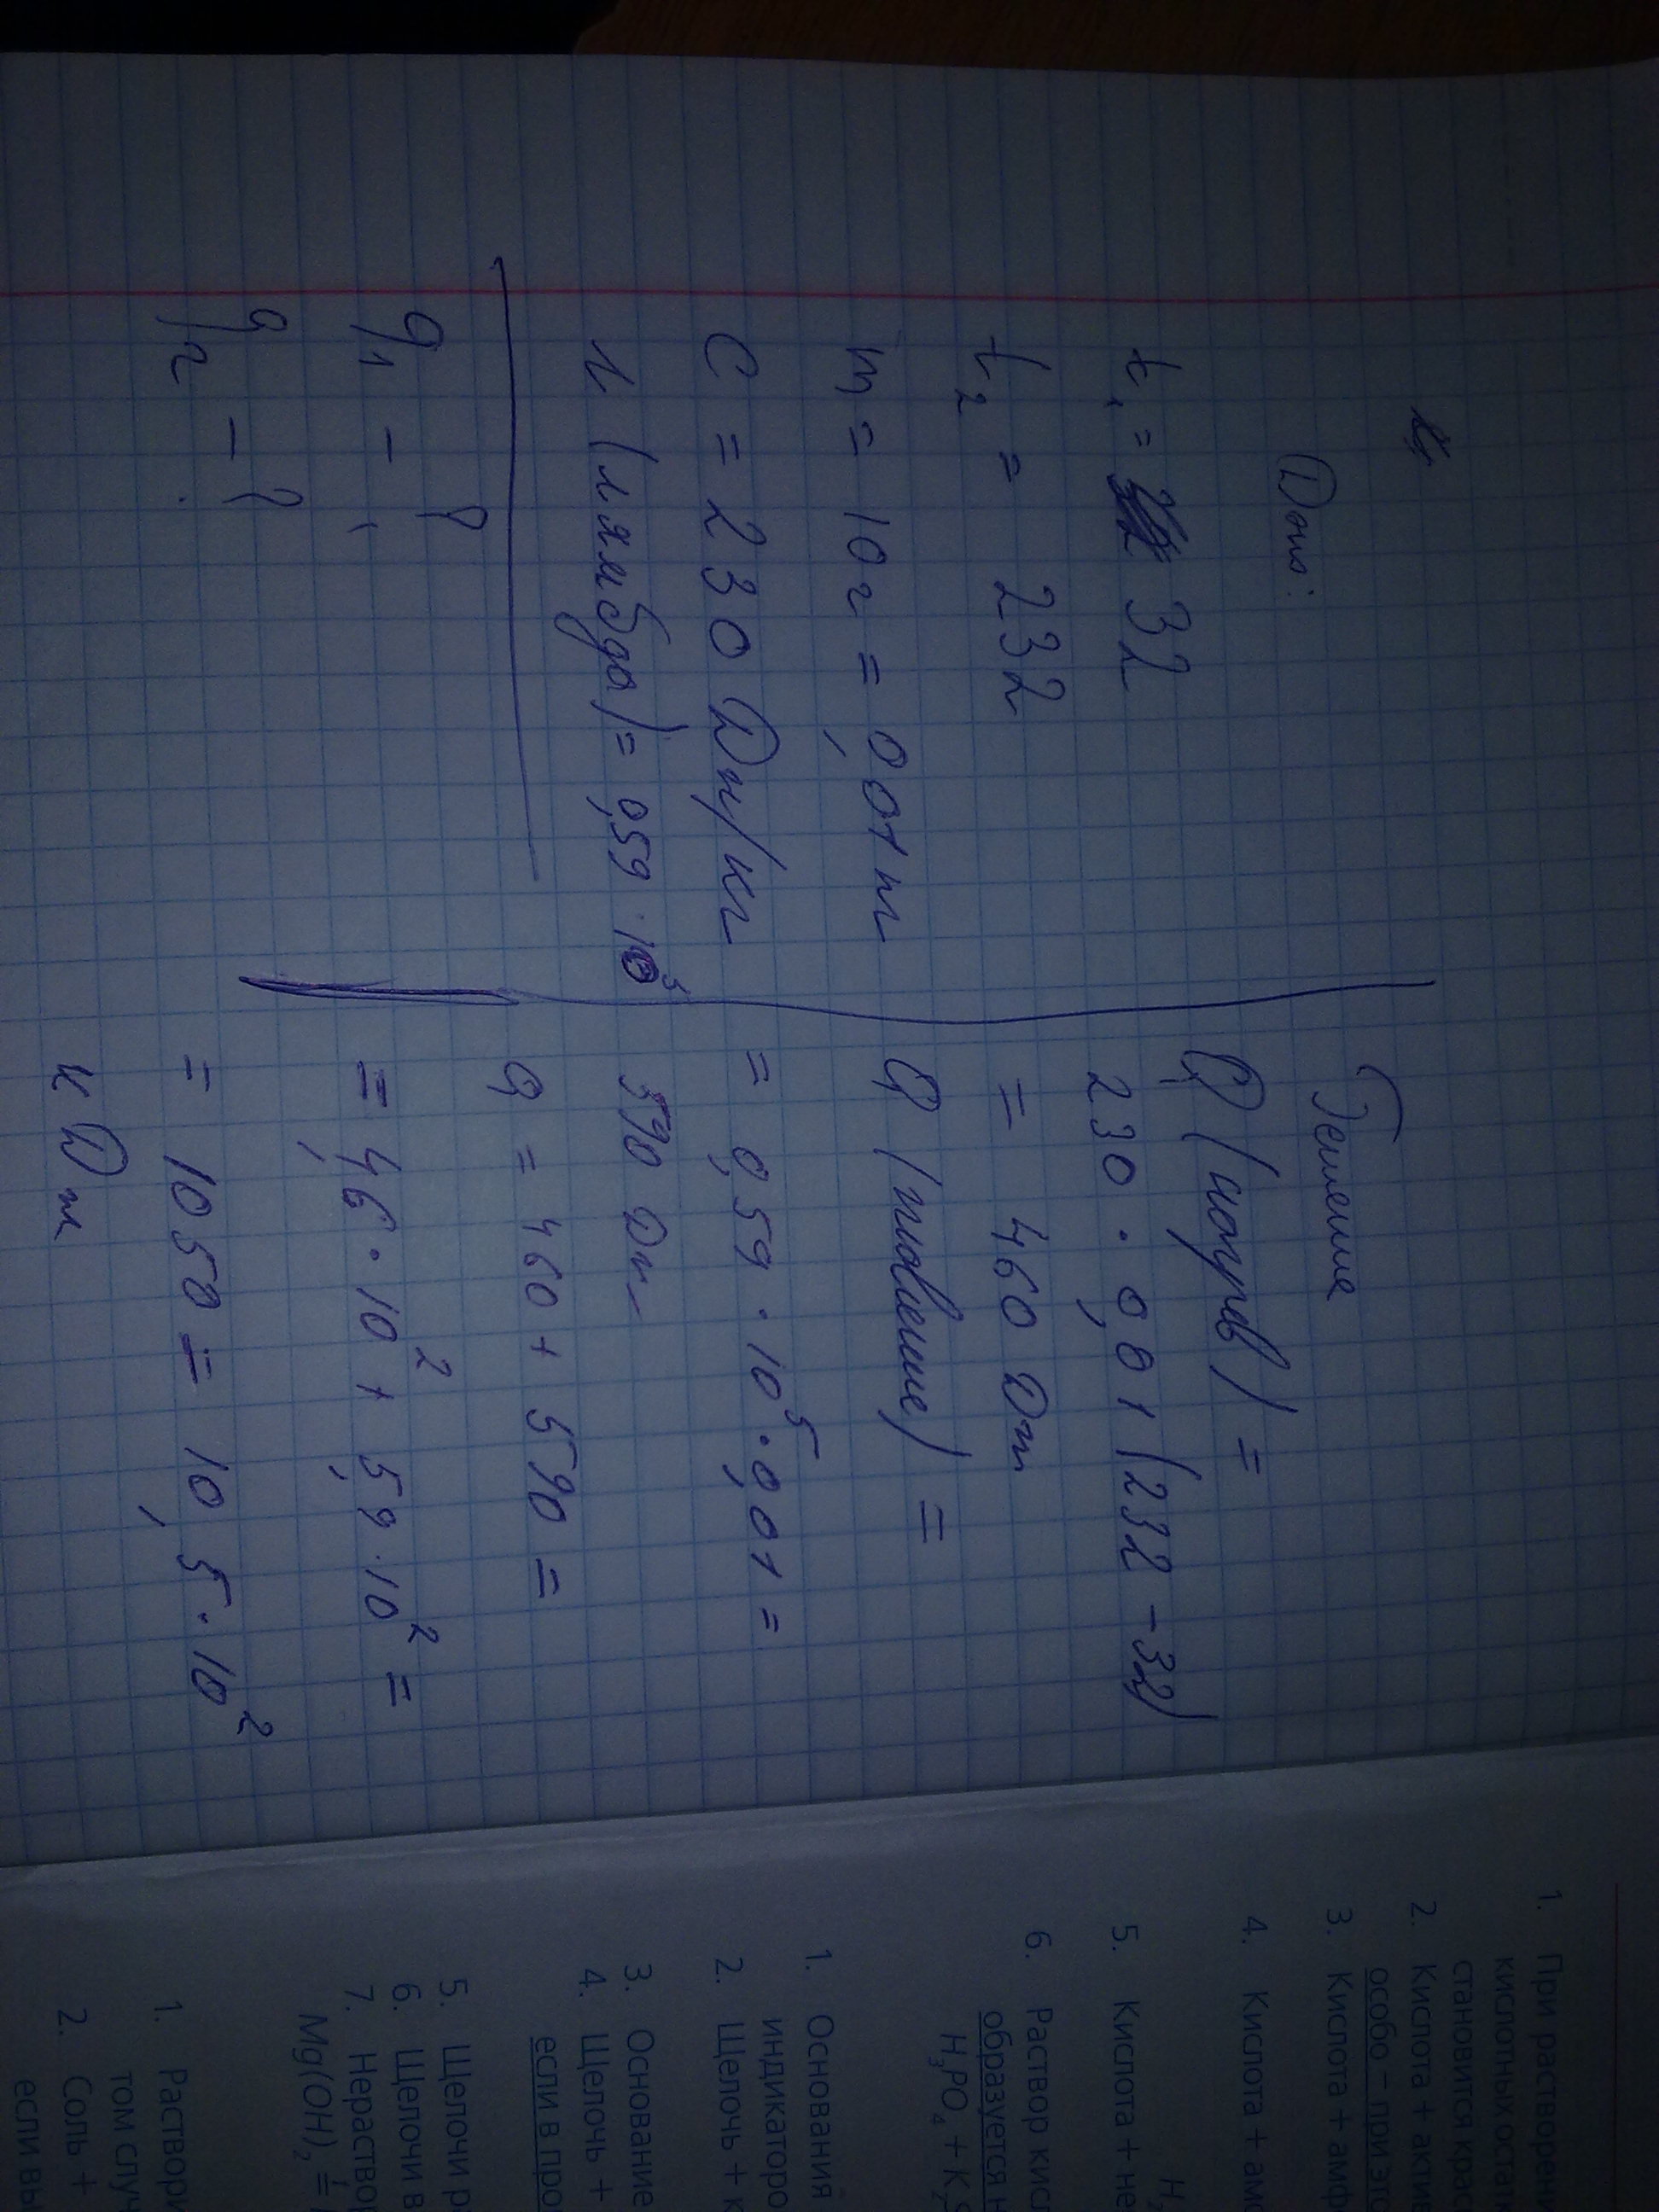 Дано:
t₁ = 32
t₂ = 232
m = 10 г = 0,01 кг
C = 230 Дж/кг
λ (лямбда) = 0,59 · 10⁵
q₁ - ?
q₂ - ?
Решение
Q (нагрев) =
230 · 0,01 (232 - 32)
= 460 Дж
Q (плавление) =
= 0,59 · 10⁵ · 0,01 =
590 Дж
Q = 460 + 590 =
= 4,6 · 10² + 5,9 · 10² =
= 1050 = 10,5 · 10²
кДж
1. При растворен
кислотных остат
становится крас
2. Кислота + акти
особо – при это
3. Кислота + амф
4. Кислота + амо
5. Кислота + не
6. Раствор кисл
образуется н
H₃PO₄ + K₂S
1. Основания
индикаторо
2. Щелочь + к
3. Основание
4. Щелочь +
если в про
5. Щелочи р
6. Щелочи в
7. Нераствор
Mg(OH)₂ =
1. Раствори
том случ
2. Соль +
если вы